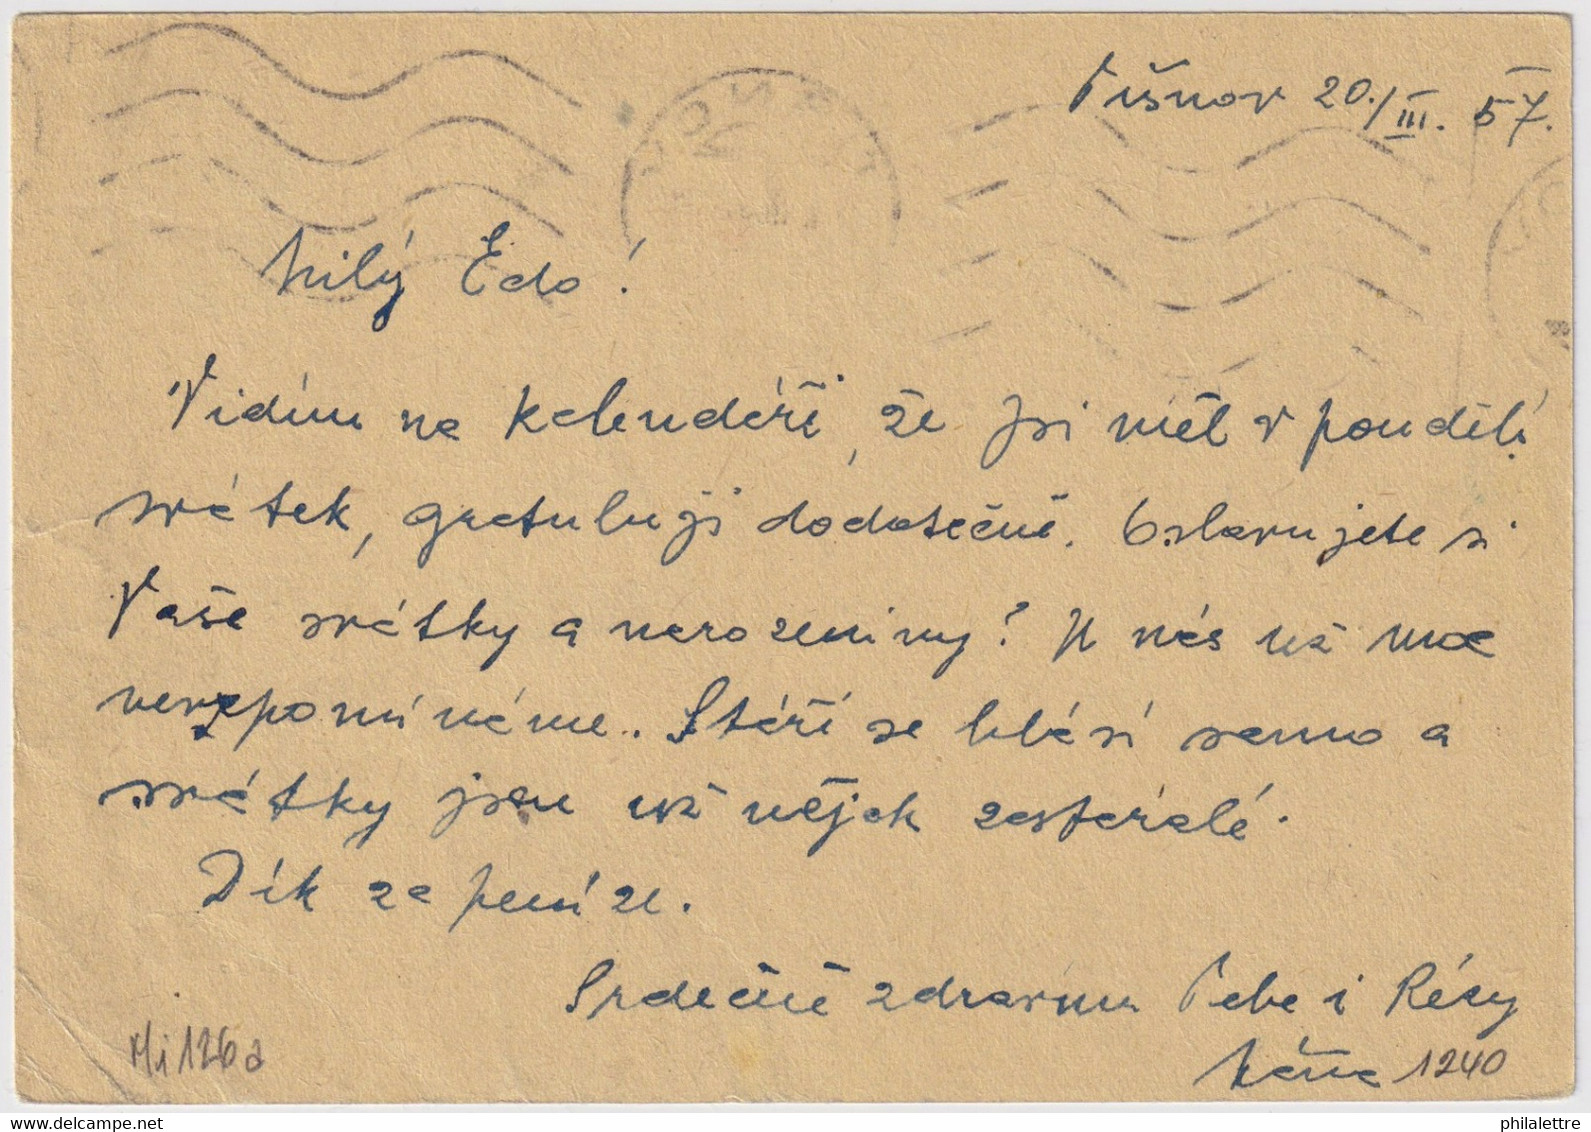 Tišnov 20./III. 57.
Milý Edo!
Vidím na kalendáři, že jsi měl v pondělí
svátek, gratuluji dodatečně. Oslavujete si
Vaše svátky a narozeniny? U nás už moc
nevzpomínáme. Stáří se hlásí samo a
svátky jsou už nějak zestáralé.
Dík za peníze.
Srdečně zdravím Tebe i
Mi 126 a
1240
philalettre